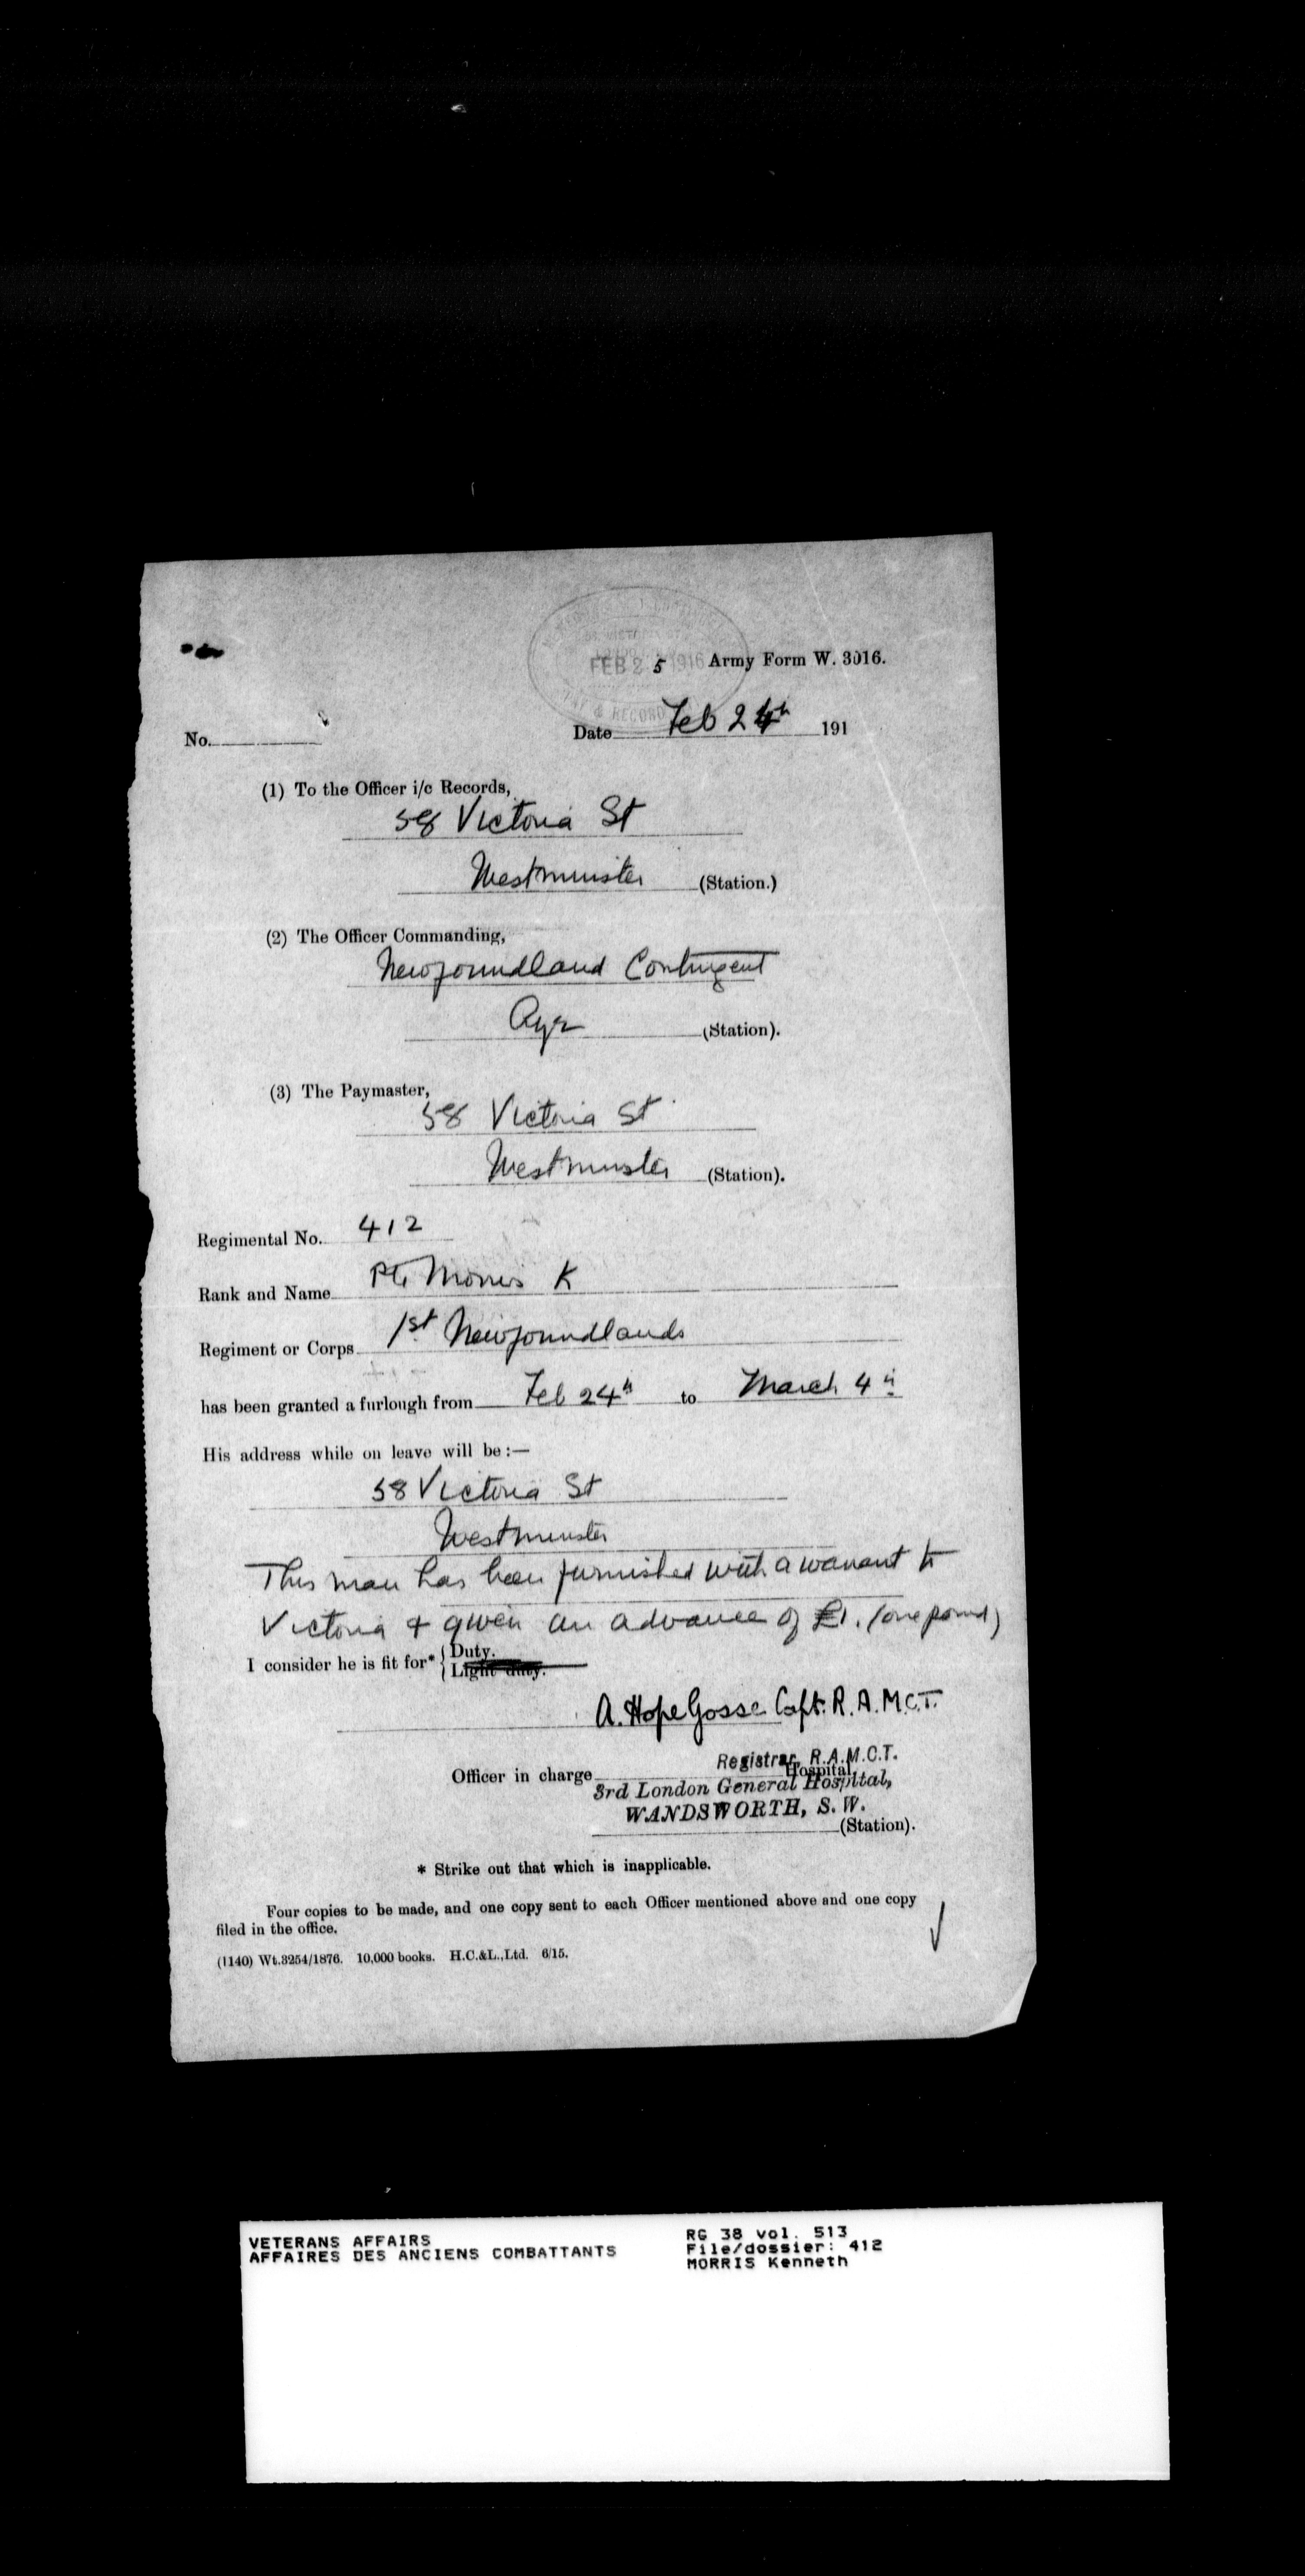 FEB 25 1916
PAY & RECORD
Army Form W. 3016.
No.
Date Feb 24th 191
(1) To the Officer i/c Records,
58 Victoria St
Westminster (Station.)
(2) The Officer Commanding,
Newfoundland Contingent
Ayr (Station).
(3) The Paymaster,
58 Victoria St
Westminster (Station).
Regimental No. 412
Rank and Name Pte Morris K
Regiment or Corps 1st Newfoundlands
has been granted a furlough from Feb 24th to March 4th
His address while on leave will be :—
58 Victoria St
Westminster
This man has been furnished with a warrant to
Victoria & given an advance of £1. (one pound)
I consider he is fit for* { Duty.
Light duty.
A. Hope Gosse Capt. R.A.M.C.T.
Registrar, R.A.M.C.T.
Officer in charge Hospital,
3rd London General Hospital,
WANDSWORTH, S. W.
(Station).
* Strike out that which is inapplicable.
Four copies to be made, and one copy sent to each Officer mentioned above and one copy
filed in the office.
(1140) Wt.3254/1876. 10,000 books. H.C.&L.,Ltd. 6/15.
VETERANS AFFAIRS
AFFAIRES DES ANCIENS COMBATTANTS
RG 38 vol. 513
File/dossier: 412
MORRIS Kenneth